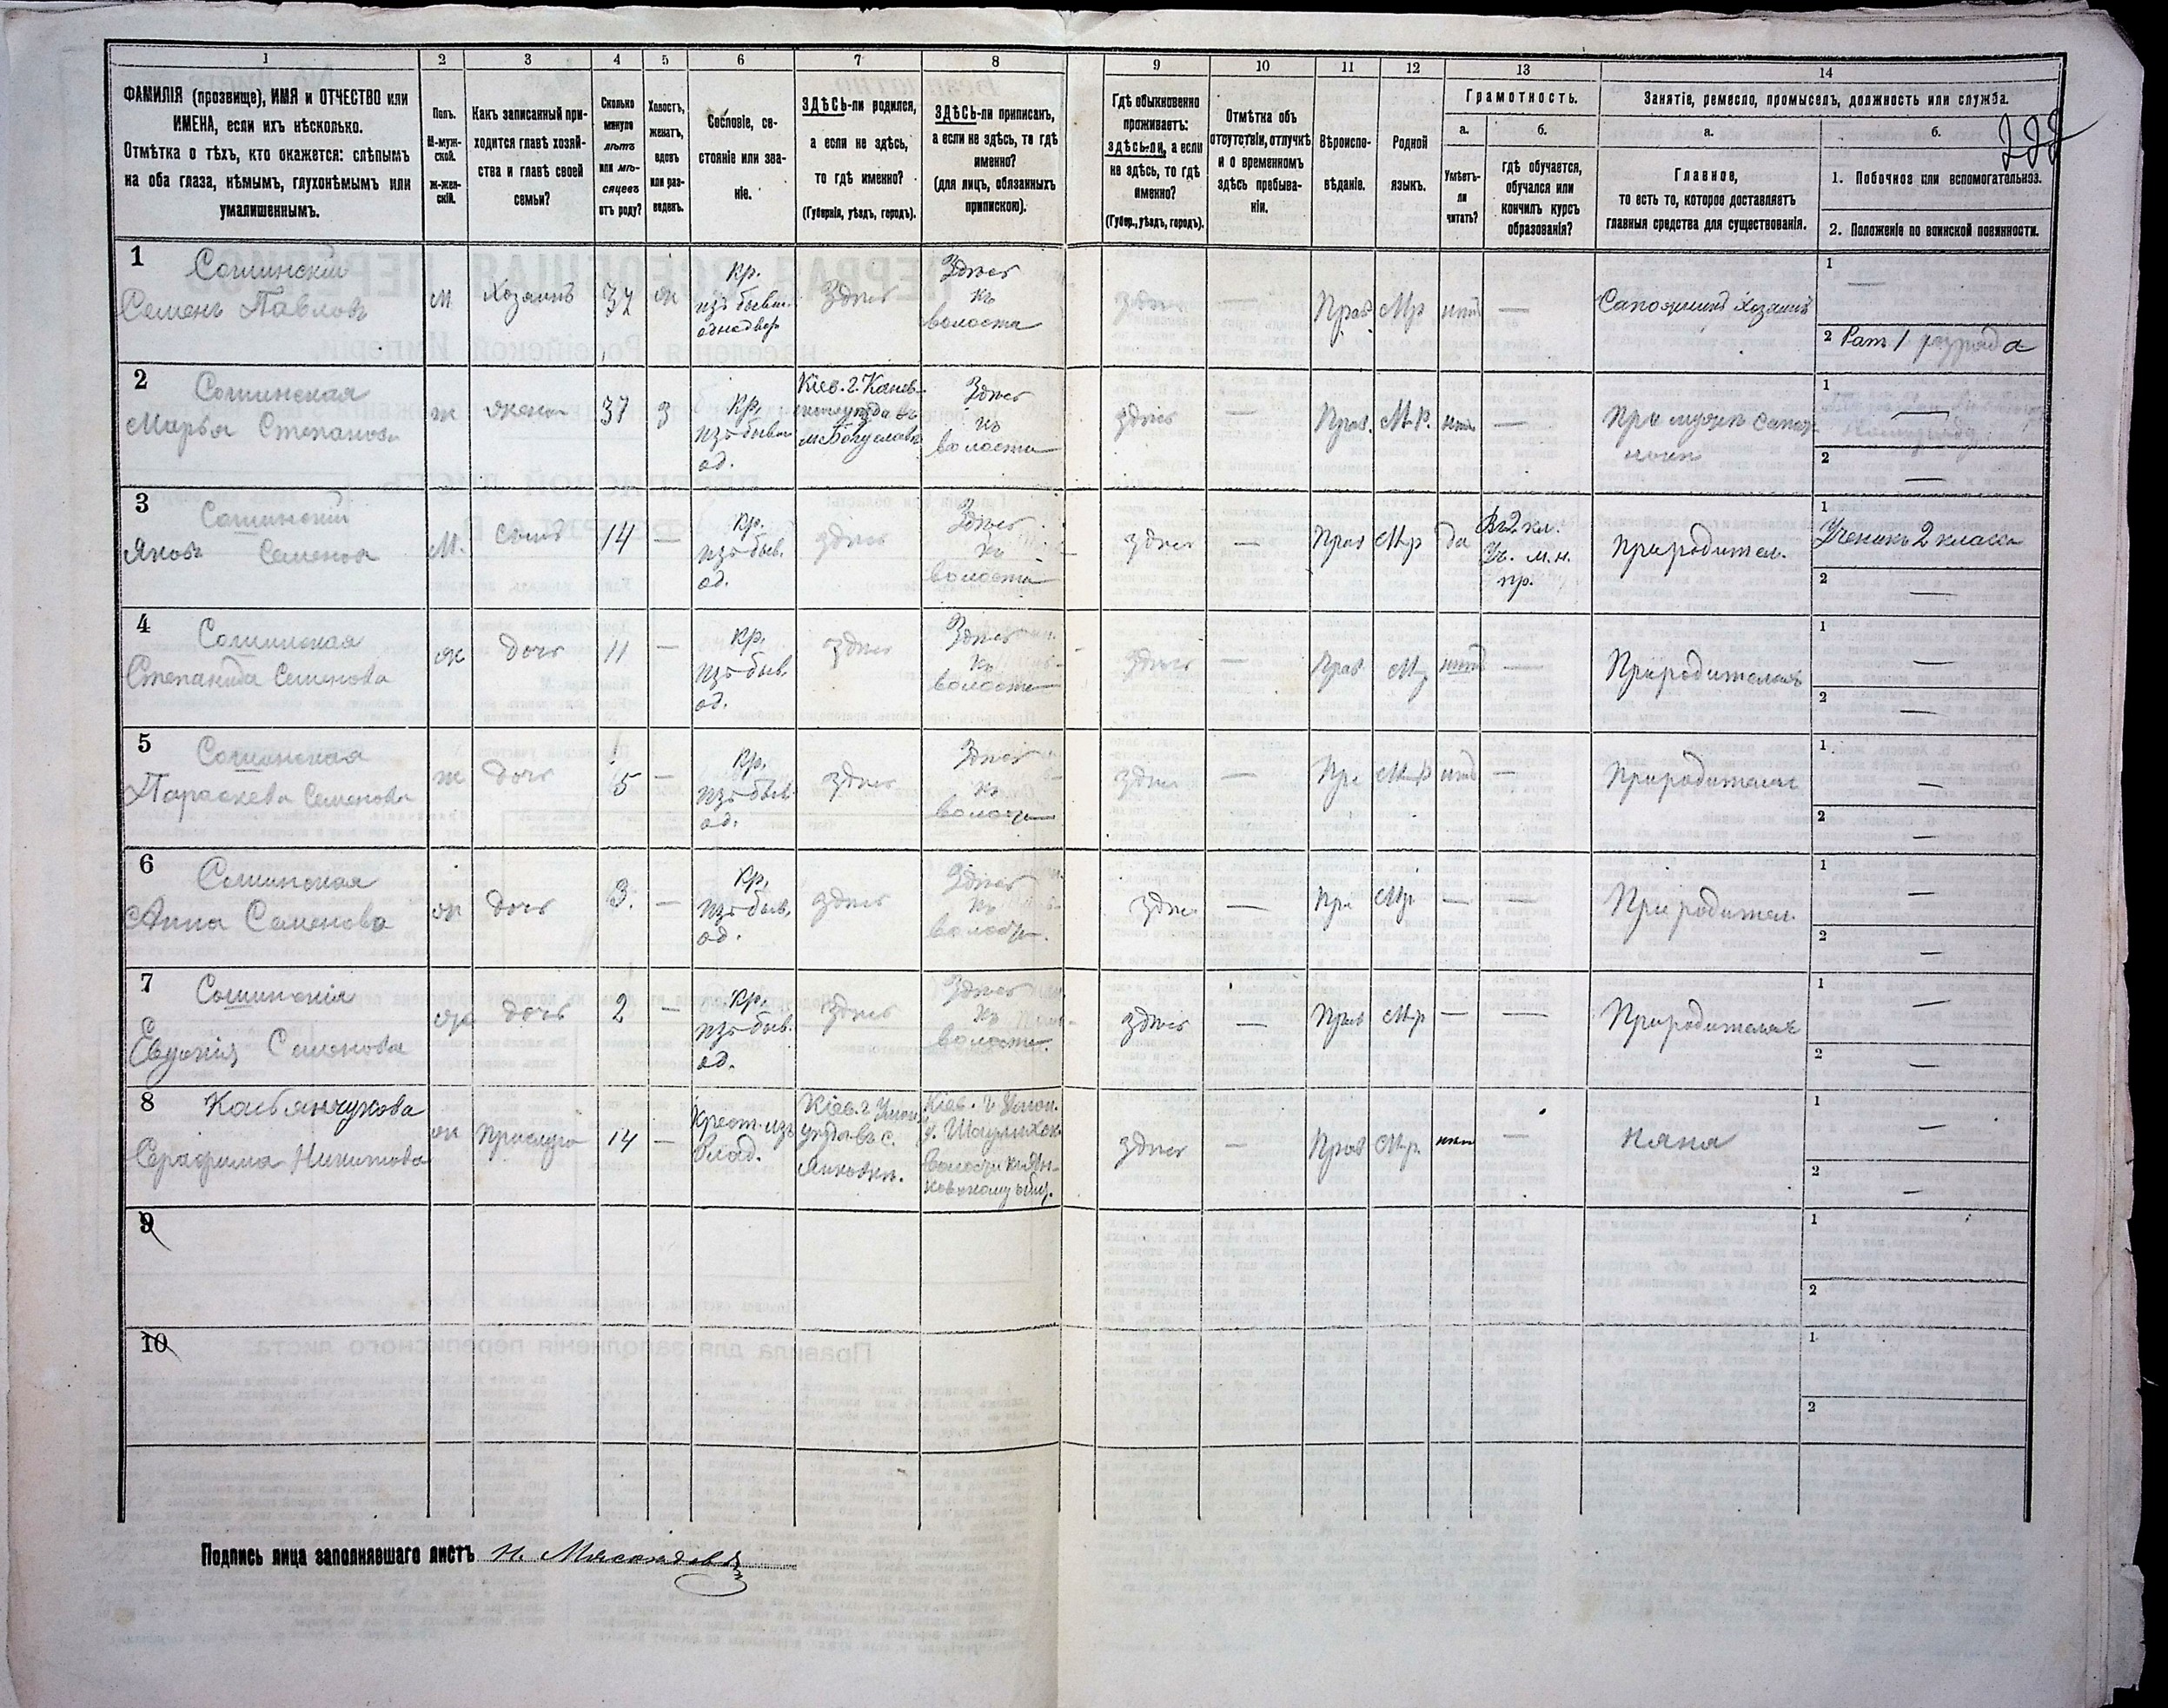 1 2 3 4 5 6 7 8 9 10 11 12 13 14
ФАМИЛІЯ (прозвище), ИМЯ и ОТЧЕСТВО или
ИМЕНА, если ихъ нѣсколько.
Отмѣтка о тѣхъ, кто окажется: слѣпымъ
на оба глаза, нѣмымъ, глухонѣмымъ или
умалишеннымъ.
Полъ.
М-муж-
ской.
Ж-жен-
скій.
Какъ записанный при-
ходится главѣ хозяй-
ства и главѣ своей
семьи?
Сколько
минуло
лѣтъ
или мѣ-
сяцевъ
отъ роду?
Холостъ,
женатъ,
вдовъ
или раз-
веденъ.
Сословіе, со-
стояніе или зва-
ніе.
ЗДѢСЬ-ли родился,
а если не здѣсь,
то гдѣ именно?
(Губернія, уѣздъ, городъ).
ЗДѢСЬ-ли приписанъ,
а если не здѣсь, то гдѣ
именно?
(для лицъ, обязанныхъ
припискою).
Гдѣ обыкновенно
проживаетъ:
здѣсь-ли, а если
не здѣсь, то гдѣ
именно?
(Губер., уѣздъ, городъ).
Отмѣтка объ
отсутствіи, отлучкѣ
и о временномъ
здѣсь пребыва-
ніи.
Вѣроиспо-
вѣданіе.
Родной
языкъ.
Грамотность.
а.
Умѣетъ-
ли
читать?
б.
гдѣ обучается,
обучался или
кончилъ курсъ
образованія?
Занятіе, ремесло, промыселъ, должность или служба.
а.
Главное,
то есть то, которое доставляетъ
главныя средства для существованія.
б.
1. Побочное или вспомогательное.
2. Положеніе по воинской повинности.
1
Семенъ Павловъ
м
Хозяинъ
37
ж
Кр.
изъ бывш.
однодвор
Здѣсь
Здѣсь
къ
волости
здѣсь
—
Прав
Мр
нѣтъ
—
Сапожникъ Хозяинъ
1
—
2 Рат 1 разряда
2
Марья Степанова
ж
жена
37
з
Кр.
изъ бывш
од.
Кіев. г. Канев-
скаго уѣзда въ
м. Богуславѣ
Здѣсь
къ
волости
здѣсь
—
Прав.
М.р.
нѣтъ
—
При мужѣ сапож-
никѣ
1
—
2
—
3
Яковъ Семеновъ
М.
Сынъ
14
Кр.
изъ быв.
од.
здѣсь
Здѣсь
къ
волости
здѣсь
—
Прав
Мр
да
Въ 2 кл.
Уч. м. н.
пр.
При родител.
1
Ученикъ 2 класса
2
—
4
Степанида Семенова
ж
дочь
11
—
Кр.
изъ быв.
од.
здѣсь
Здѣсь
къ
волости
здѣсь
—
Прав
Мр
нѣтъ
—
При родителяхъ
1
—
2
—
5
Параскева Семенова
ж
дочь
5
—
Кр.
изъ быв.
од.
здѣсь
Здѣсь
къ
волости
здѣсь
—
Пр
М.р
нѣтъ
—
При родителях
1
—
2
—
6
Анна Семенова
ж
дочь
3.
—
Кр.
изъ быв.
од.
здѣсь
Здѣсь
къ
здѣс
—
Пр
Мр
—
—
При родител.
1
—
2
—
7
Евдокія Семенова
ж
дочь
2
—
Кр.
изъ быв.
од.
здѣсь
Здѣсь
къ
волости.
здѣсь
—
Прав
Мр
—
—
При родителях
1
—
2
—
8 Касьянчукова
Серафима Никитова
ж
Прислуга
14
—
Крест. изъ
влад.
Кіев. г Уман
уѣзда въ с.
Янковкѣ.
Кіев. г. Уман.
у.
здѣсь
—
Прав
Мр.
нѣт
—
няня
1
—
2
—
9
1
2
10
1
2
Подпись лица заполнявшаго листъ